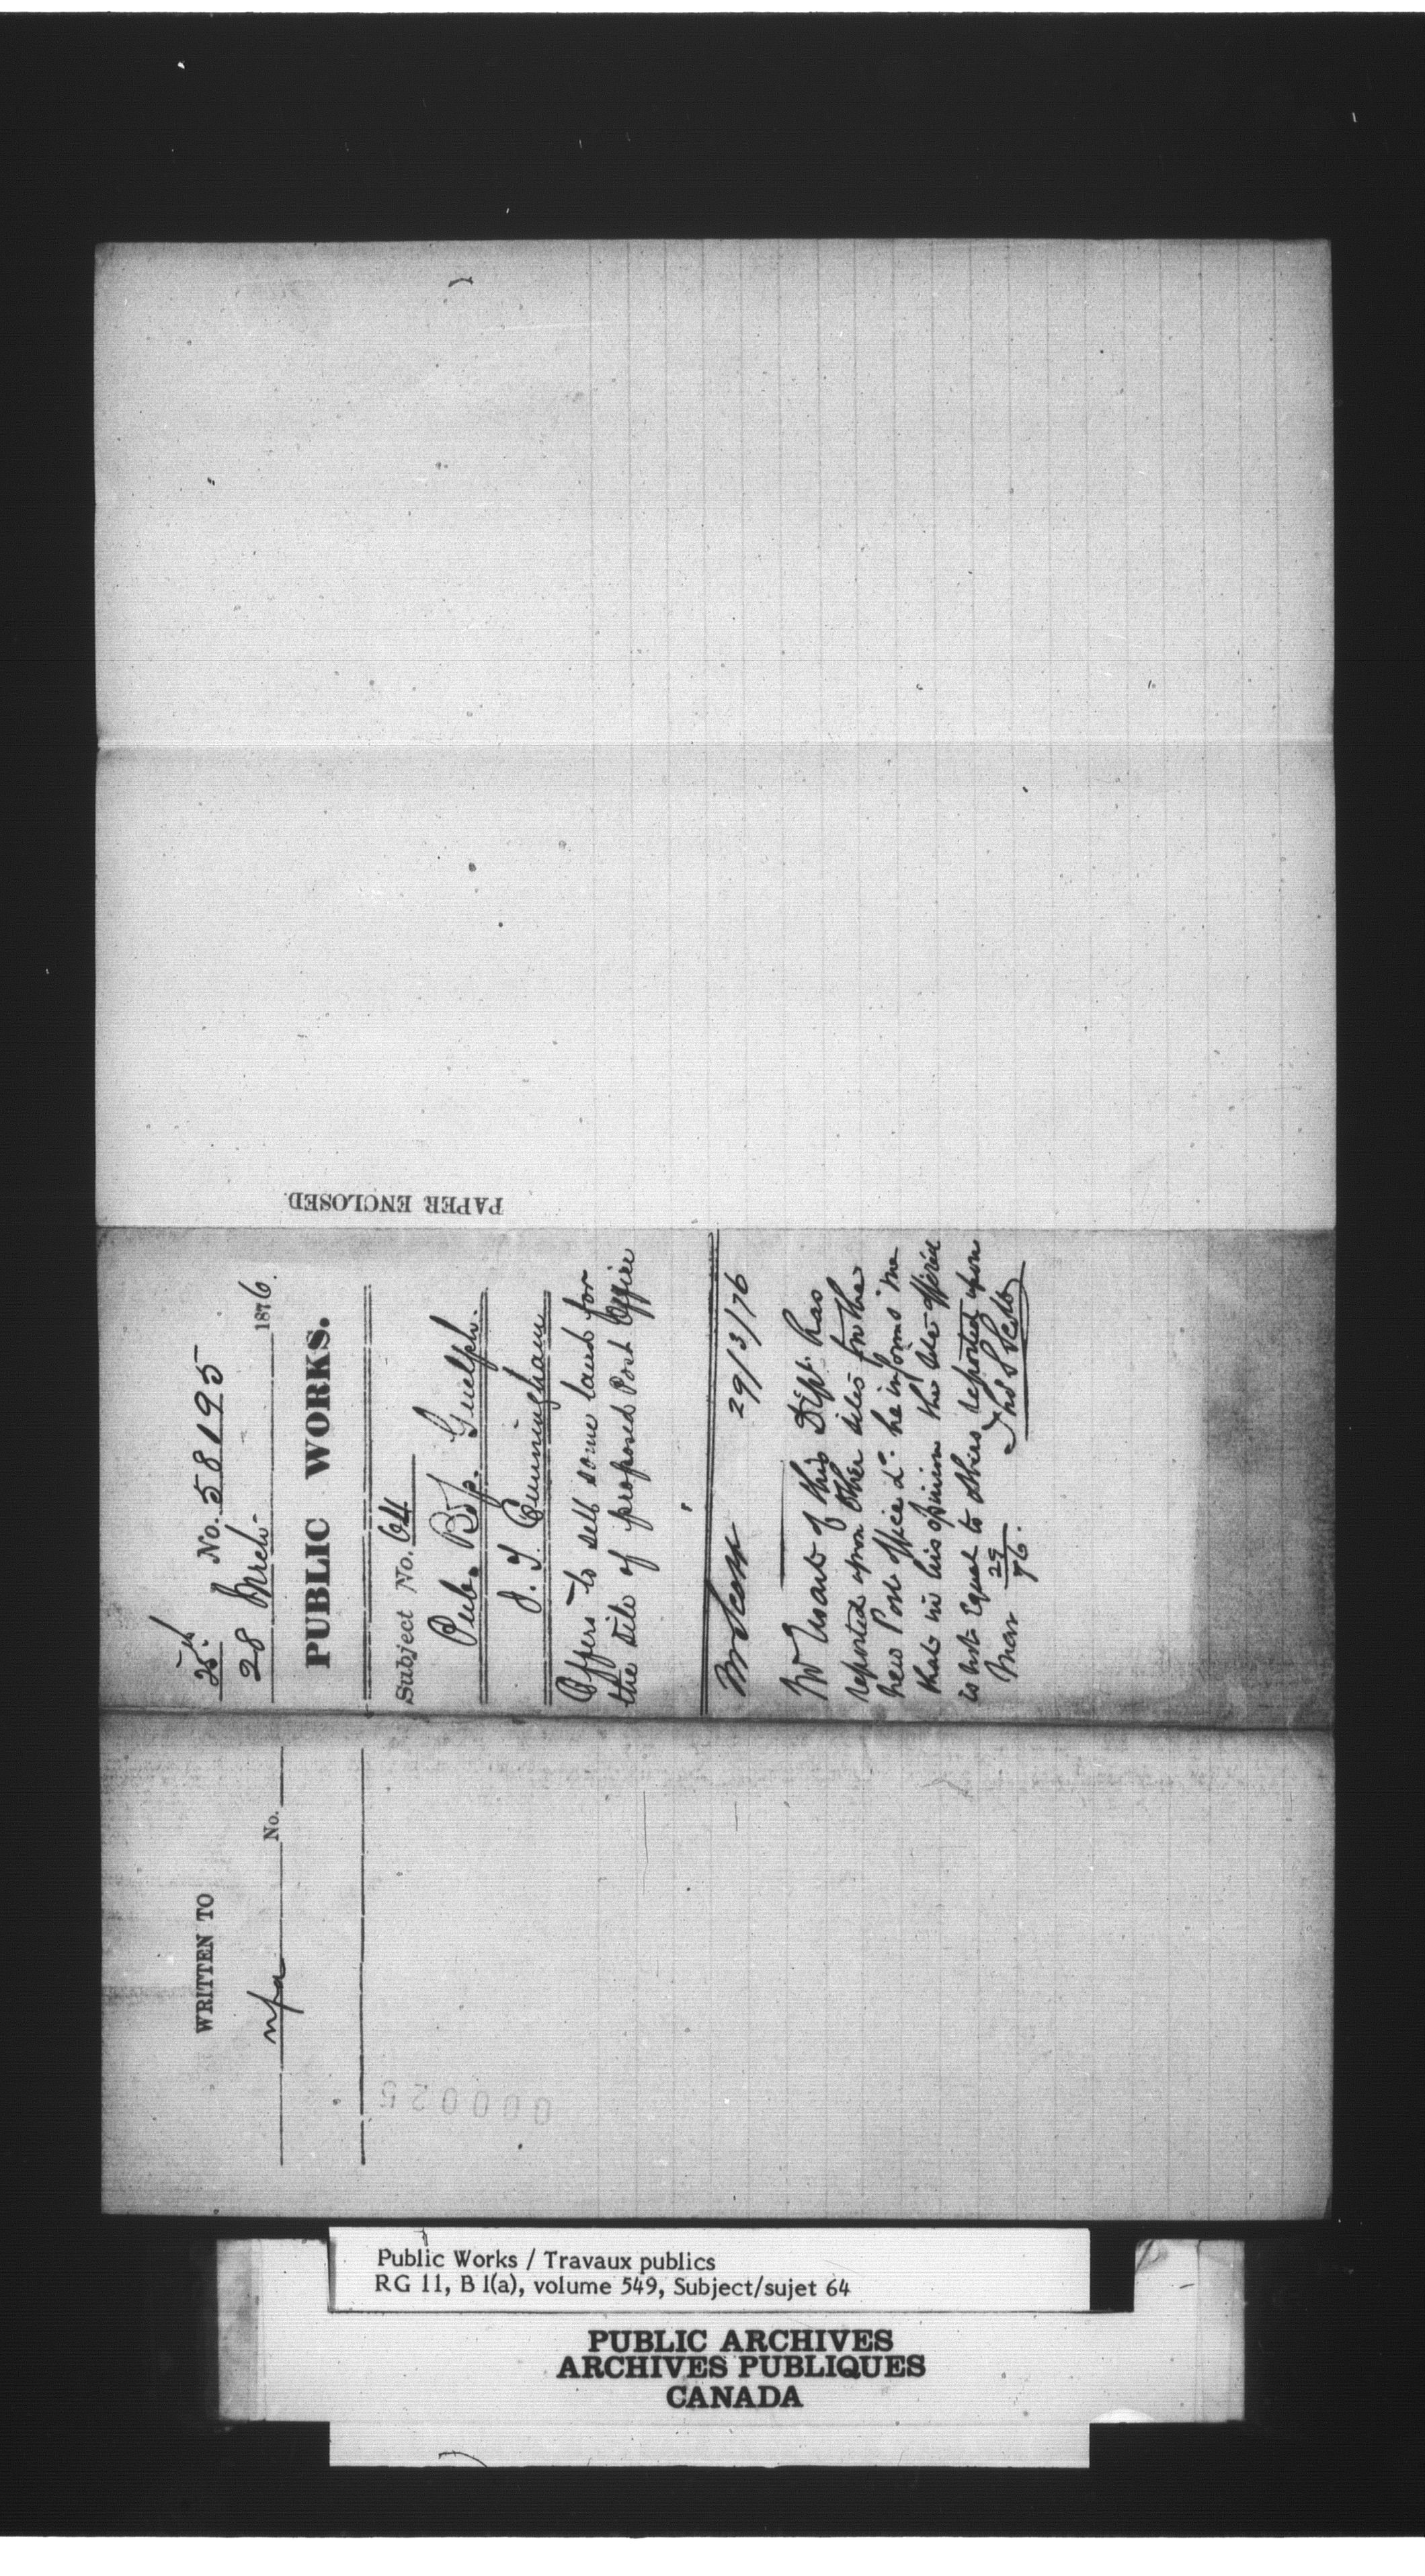 25th No. 58195
28 March 1876.
PUBLIC WORKS.
Subject No. 64
Pub. Bdg. Guelph.
J. T. Cunningham
Offers to sell some land for
the site of proposed Post Office
Mr Scott 29/3/76
Mr Ewart of this Dept. has
reported upon other sites for the
new Post office & he informs me
that in his opinion the site offered
is not Equal to others reported upon
Mar 29/76. Thos S Scott
PAPER ENCLOSED
WRITTEN TO
nfa No.
000025
Public Works / Travaux publics
RG 11, B 1(a), volume 549, Subject/sujet 64
PUBLIC ARCHIVES
ARCHIVES PUBLIQUES
CANADA